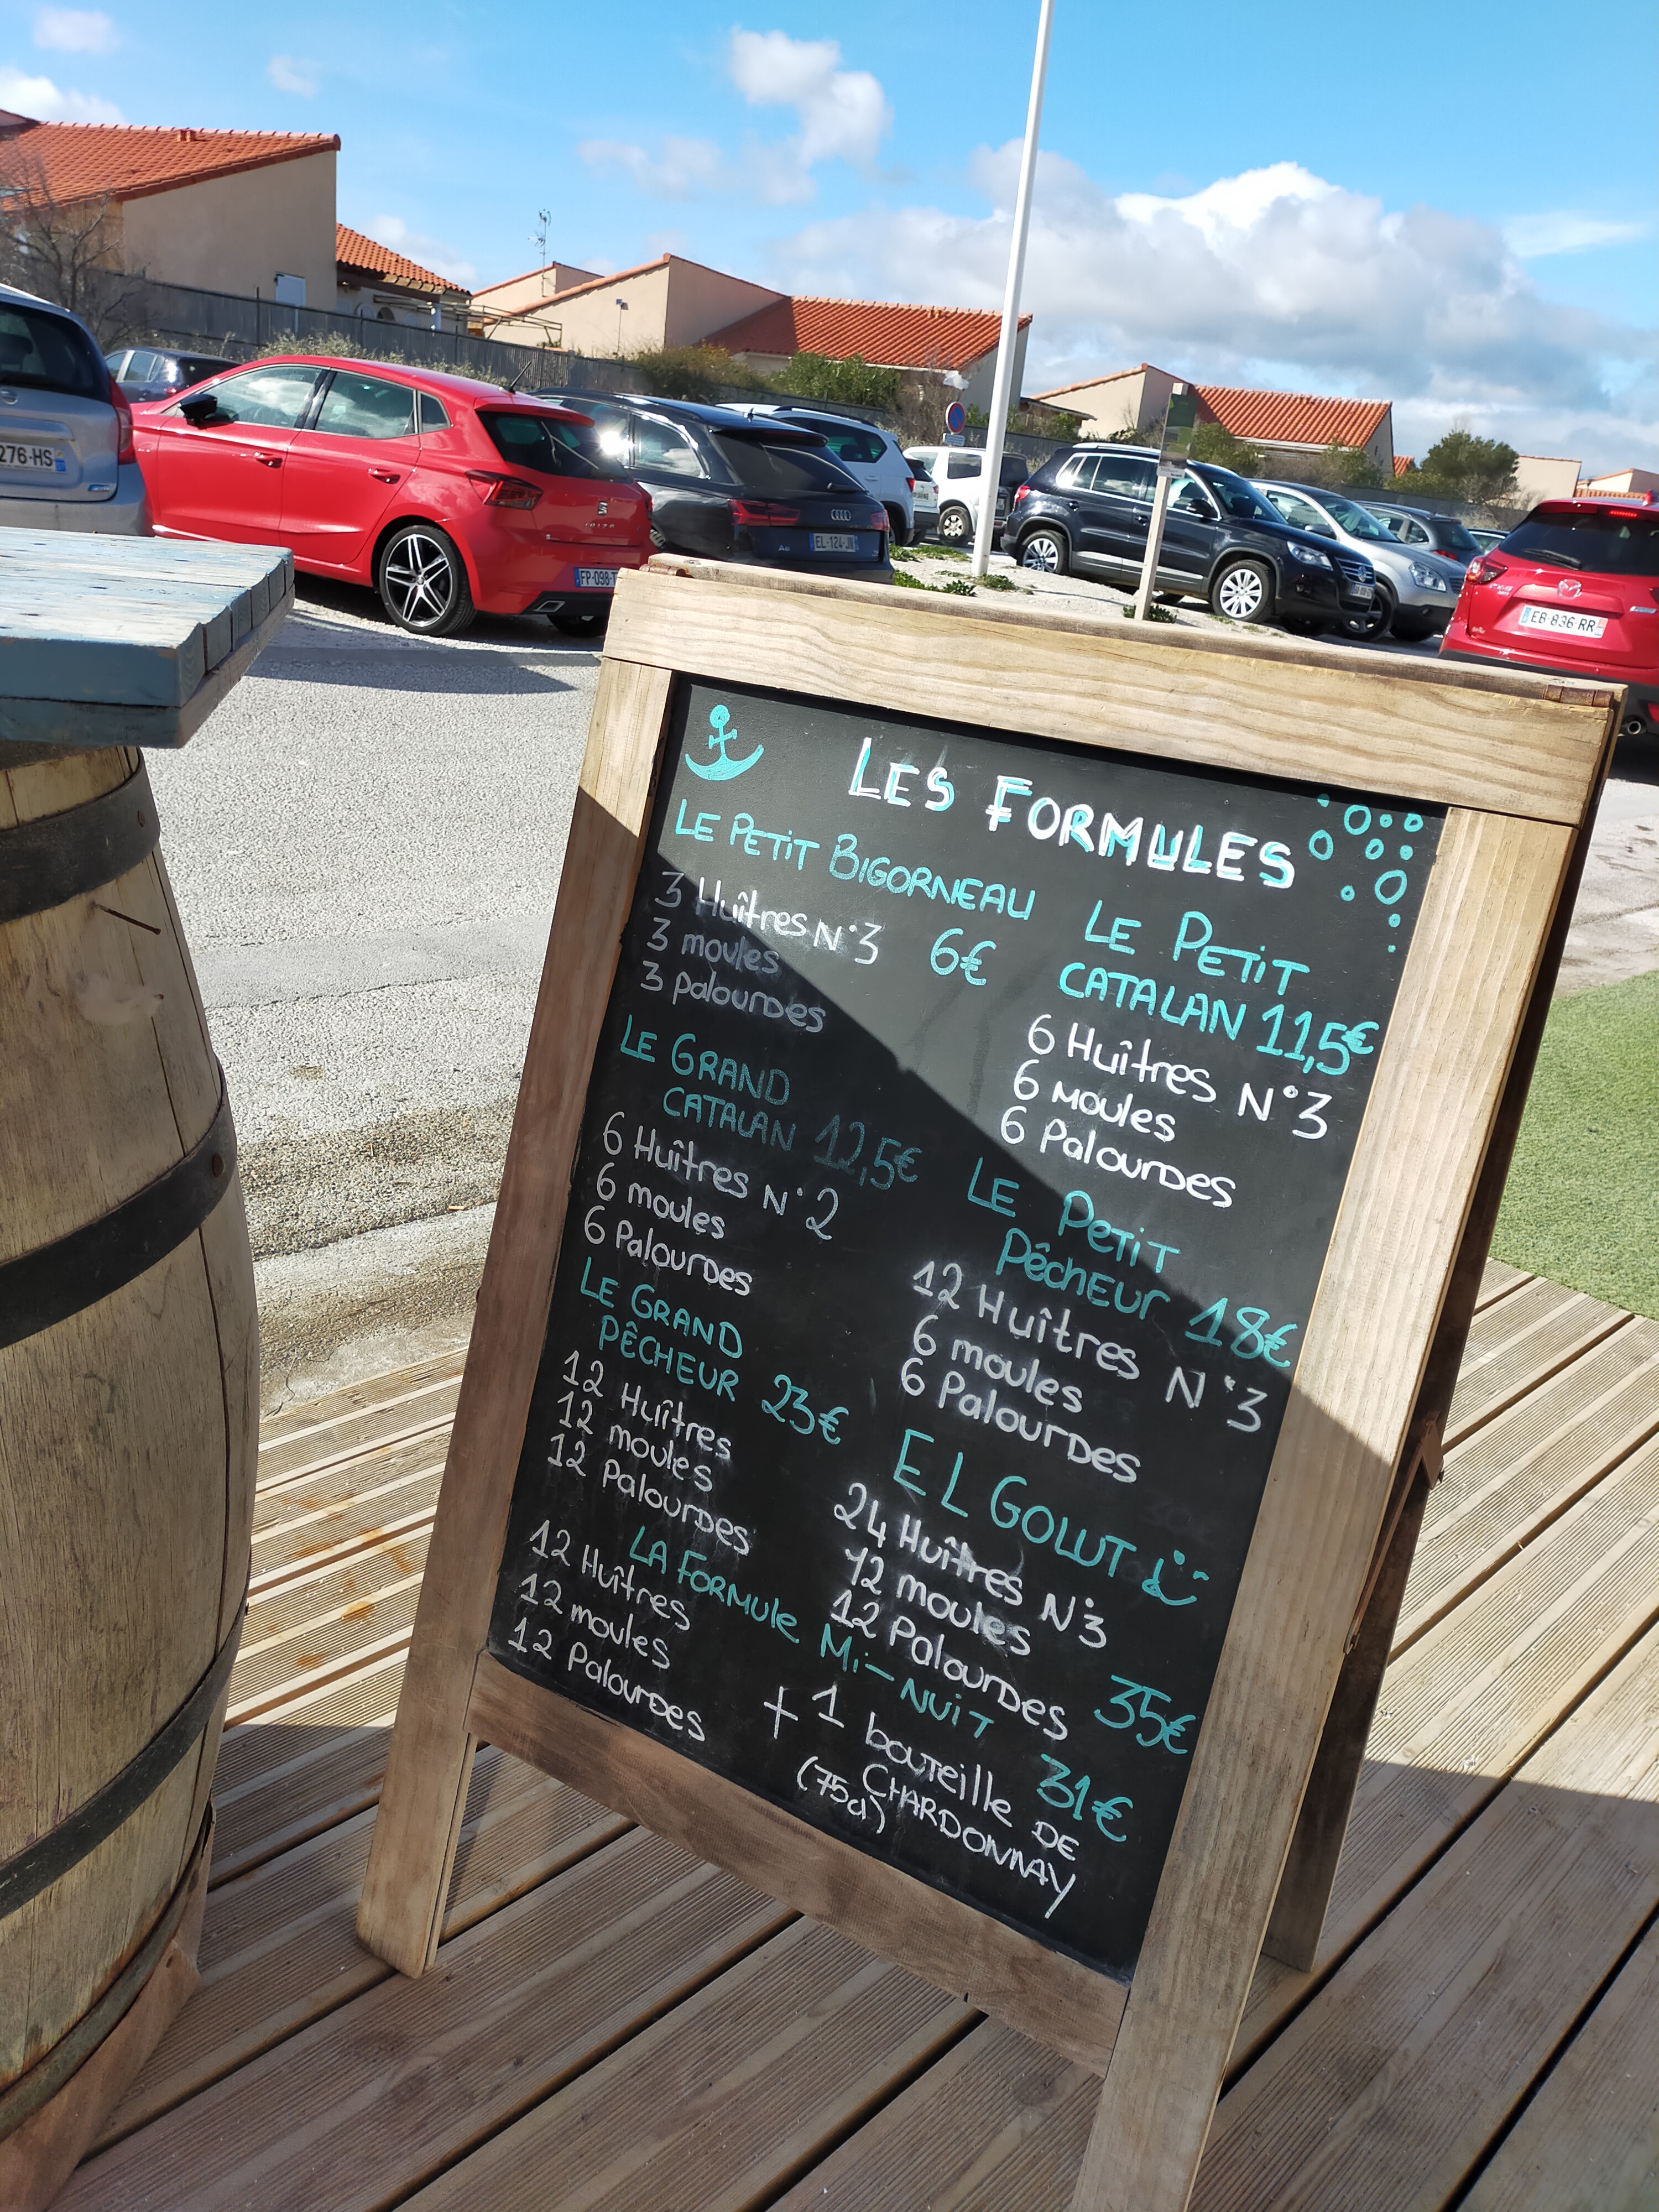 LES FORMULES
LE PETIT BIGORNEAU
3 Huîtres N°3 6€
3 moules
3 palourdes
LE PETIT
CATALAN 11,5€
6 Huîtres N°3
6 moules
6 Palourdes
LE GRAND
CATALAN 12,5€
6 Huîtres N°2
6 moules
6 Palourdes
LE PETIT
PÊCHEUR 18€
12 Huîtres N°3
6 moules
6 Palourdes
LE GRAND
PÊCHEUR 23€
12 Huîtres
12 moules
12 Palourdes
EL GOLUT
24 Huîtres N°3
12 moules
12 Palourdes 35€
LA FORMULE Mi-NUIT 31€
12 Huîtres
12 moules
12 Palourdes
+ 1 bouteille DE
CHARDONNAY
(75cl)
276-HS
FP-098-T
IBIZA
A6
EL-124-JN
EB-836-RR